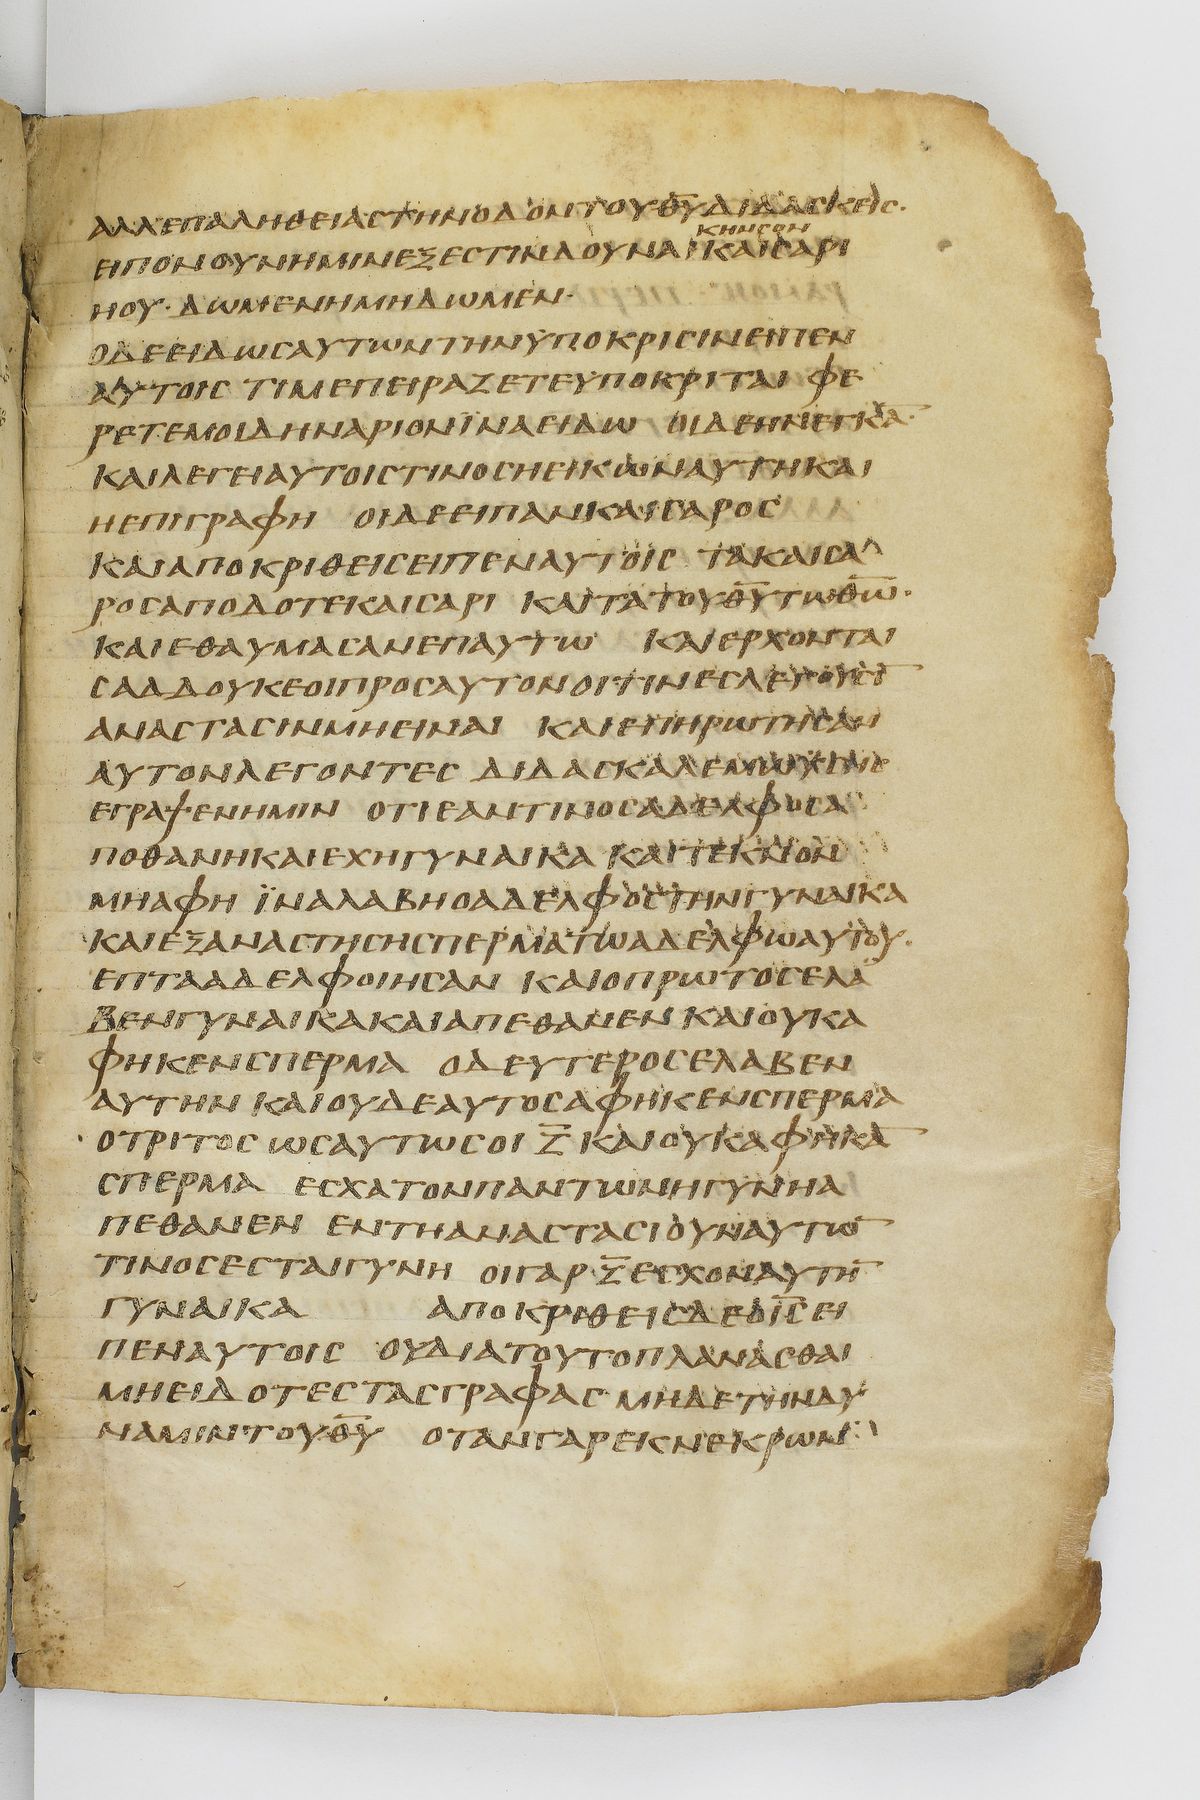 ΑΛΛΕΠΑΛΗΘΕΙΑΣΤΗΝΟΔΟΝΤΟΥΘ̅Υ̅ΔΙΔΑΣΚΕΙΣ·
ΚΗΝΣΟΝ
ΕΙΠΟΝΟΥΝΗΜΙΝΕΞΕΣΤΙΝΔΟΥΝΑΙΚΑΙΣΑΡΙ
ΗΟΥ·ΔΩΜΕΝΗΜΗΔΩΜΕΝ·
ΟΔΕΕΙΔΩΣΑΥΤΩΝΤΗΝΥΠΟΚΡΙΣΙΝΕΙΠΕΝ
ΑΥΤΟΙΣ ΤΙΜΕΠΕΙΡΑΖΕΤΕΥΠΟΚΡΙΤΑΙ ΦΕ
ΡΕΤΕΜΟΙΔΗΝΑΡΙΟΝΪΝΑΕΙΔΩ ΟΙΔΕΗΝΕΓΚΑ̅·
ΚΑΙΛΕΓΕΙΑΥΤΟΙΣΤΙΝΟΣΗΕΙΚΩΝΑΥΤΗΚΑΙ
ΗΕΠΙΓΡΑΦΗ ΟΙΔΕΕΙΠΑΝΚΑΙΣΑΡΟΣ
ΚΑΙΑΠΟΚΡΙΘΕΙΣΕΙΠΕΝΑΥΤΟΙΣ ΤΑΚΑΙΣΑ
ΡΟΣΑΠΟΔΟΤΕΚΑΙΣΑΡΙ ΚΑΙΤΑΤΟΥΘ̅Υ̅ΤΩΘ̅Ω̅·
ΚΑΙΕΘΑΥΜΑΣΑΝΕΠΑΥΤΩ ΚΑΙΕΡΧΟΝΤΑΙ
ΣΑΔΔΟΥΚΕΟΙΠΡΟΣΑΥΤΟΝΟΙΤΙΝΕΣΛΕΓΟΥΣΙ̅
ΑΝΑΣΤΑΣΙΝΜΗΕΙΝΑΙ ΚΑΙΕΠΗΡΩΤΗΣΑΝ
ΑΥΤΟΝΛΕΓΟΝΤΕΣ ΔΙΔΑΣΚΑΛΕΜΩΥΣΗΣ
ΕΓΡΑΨΕΝΗΜΙΝ ΟΤΙΕΑΝΤΙΝΟΣΑΔΕΛΦΟΣΑ
ΠΟΘΑΝΗΚΑΙΕΧΗΓΥΝΑΙΚΑ ΚΑΙΤΕΚΝΟΝ
ΜΗΑΦΗ ΪΝΑΛΑΒΗΟΑΔΕΛΦΟΣΤΗΝΓΥΝΑΙΚΑ
ΚΑΙΕΞΑΝΑΣΤΗΣΗΣΠΕΡΜΑΤΩΑΔΕΛΦΩΑΥΤΟΥ·
ΕΠΤΑΑΔΕΛΦΟΙΗΣΑΝ ΚΑΙΟΠΡΩΤΟΣΕΛΑ
ΒΕΝΓΥΝΑΙΚΑΚΑΙΑΠΕΘΑΝΕΝΚΑΙΟΥΚΑ
ΦΗΚΕΝΣΠΕΡΜΑ ΟΔΕΥΤΕΡΟΣΕΛΑΒΕΝ
ΑΥΤΗΝΚΑΙΟΥΔΕΑΥΤΟΣΑΦΗΚΕΝΣΠΕΡΜΑ
·ΟΤΡΙΤΟΣΩΣΑΥΤΩΣΟΙ Ζ̅ ΚΑΙΟΥΚΑΦΗΚΑ̅
ΣΠΕΡΜΑ ΕΣΧΑΤΟΝΠΑΝΤΩΝΗΓΥΝΗΑ
ΠΕΘΑΝΕΝ ΕΝΤΗΑΝΑΣΤΑΣΙΟΥΝΑΥΤΩ̅
ΤΙΝΟΣΕΣΤΑΙΓΥΝΗ ΟΙΓΑΡ Ζ̅ ΕΣΧΟΝΑΥΤΗ̅
ΓΥΝΑΙΚΑ ΑΠΟΚΡΙΘΕΙΣΔΕΟΙ̅Σ̅ΕΙ
ΠΕΝΑΥΤΟΙΣ ΟΥΔΙΑΤΟΥΤΟΠΛΑΝΑΣΘΑΙ
ΜΗΕΙΔΟΤΕΣΤΑΣΓΡΑΦΑΣ ΜΗΔΕΤΗΝΔΥ
ΝΑΜΙΝΤΟΥΘ̅Υ̅ ΟΤΑΝΓΑΡΕΚΝΕΚΡΩΝ